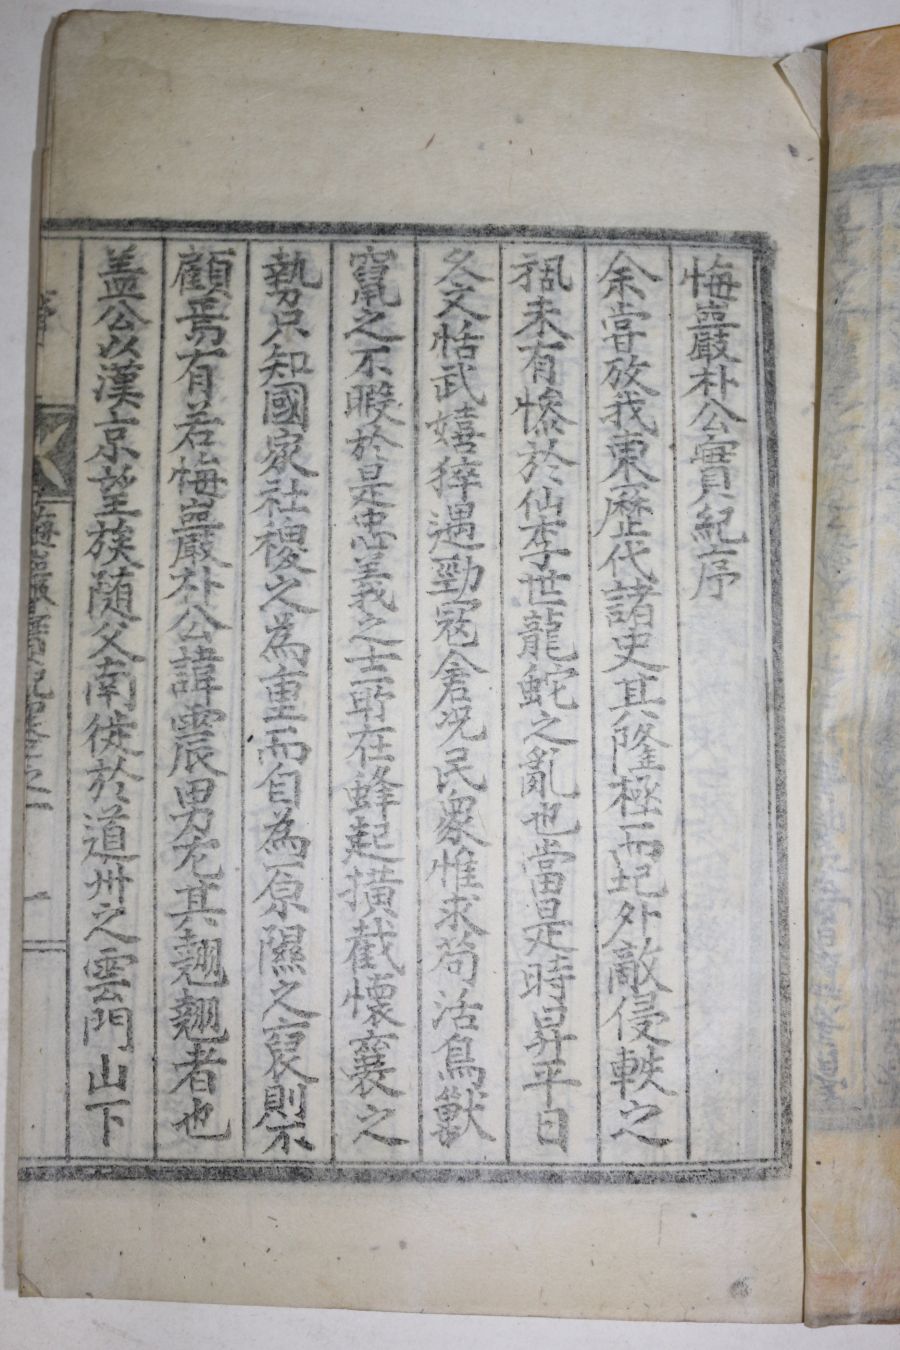 悔巖朴公實紀序
余嘗攷我東歷代諸史其隆極而圮外敵侵軼之
禍未有慘於仙李世龍蛇之亂也當是時昇平日
久文恬武嬉猝遇勁寇倉況民衆惟求苟活鳥獸
竄之不暇於是忠義之士所在蜂起擴截懷襄之
勢只知國家社稷之為重而自為原隰之裒則不
顧焉有若悔巖朴公諱震男尤其翹翹者也
盖公以漢京望族随父南徙於道州之雲門山下